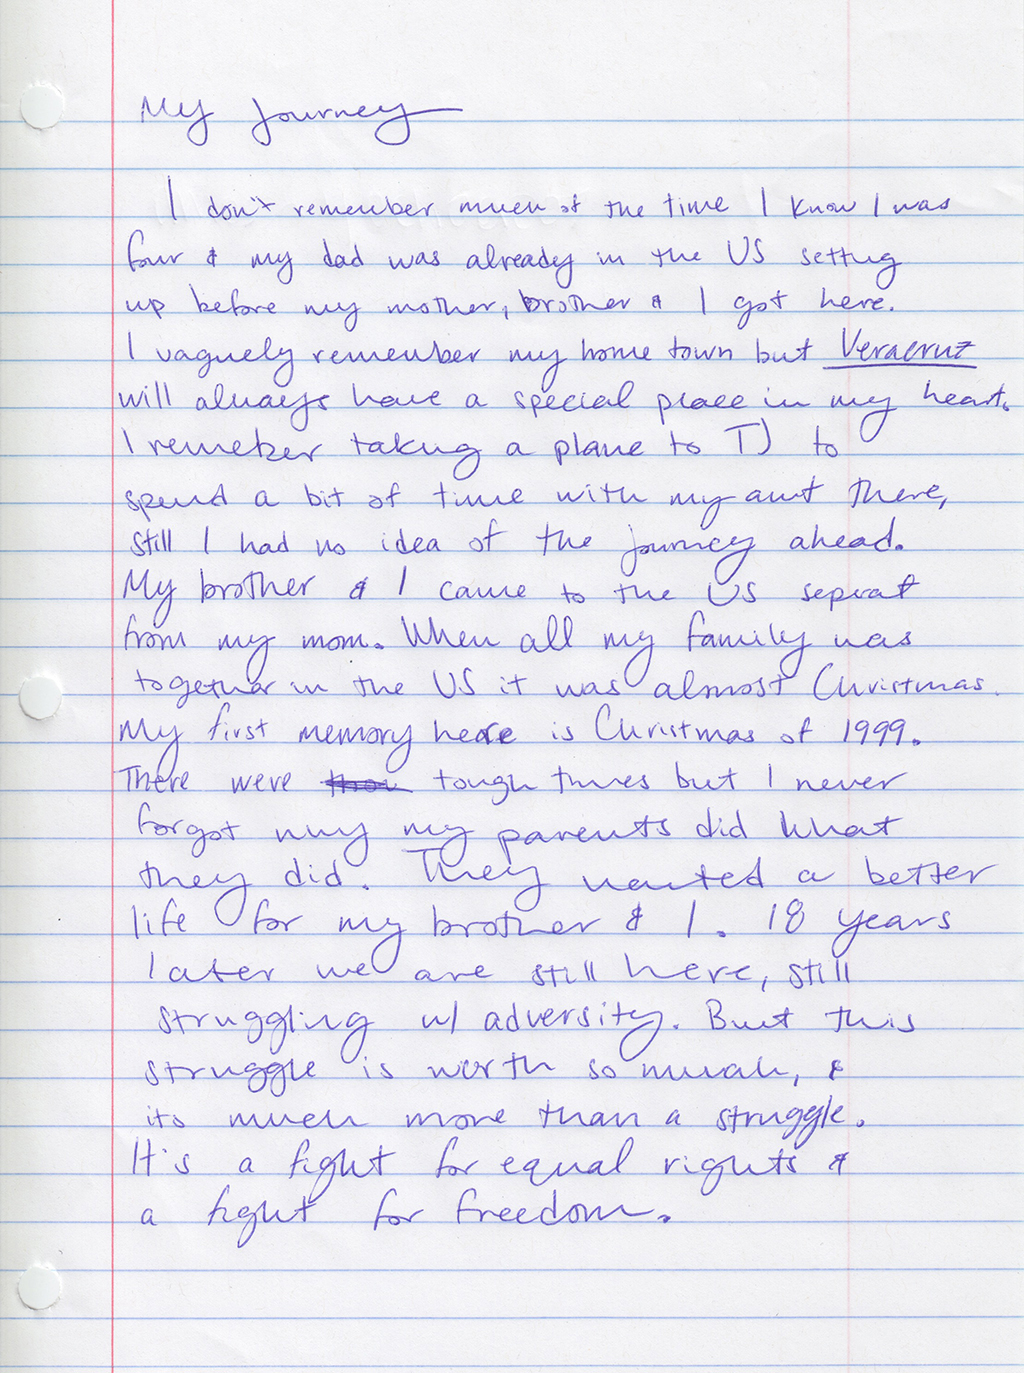 My Journey
I don't remember much of the time I know I was
four & my dad was already in the US setting
up before my mother, brother & I got here.
I vaguely remember my home town but Veracruz
will always have a special place in my heart.
I remeber taking a plane to TJ to
spend a bit of time with my aunt there,
still I had no idea of the journey ahead.
My brother & I came to the US seprat
from my mom. When all my family was
together in the US it was almost Christmas.
My first memory here is Christmas of 1999.
There were tough times but I never
forgot why my parents did what
they did. They wanted a better
life for my brother & I. 18 years
later we are still here, still
struggling w/ adversity. But this
struggle is worth so much, &
its much more than a struggle.
It's a fight for equal rights &
a fight for freedom.